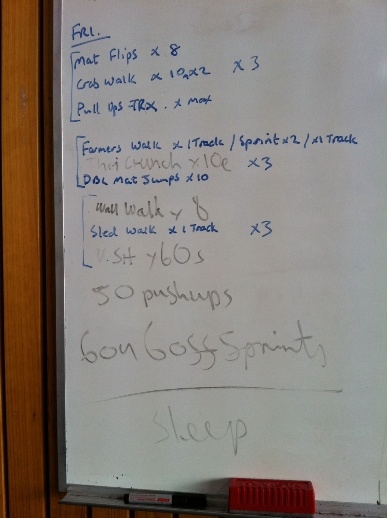 FRI.
Mat Flips x 8
Crab Walk x 10m x2 x 3
Pull Ups TRX. x Max
Farmers Walk x 1 Track / Sprint x 2 / x1 Track
Crunch x 10e x3
DBL Mat Jumps x 10
Wall Walk x 8
Sled Walk x 1 Track x3
V.Sit x 60s
50 pushups
60n 60ff Sprints
Sleep